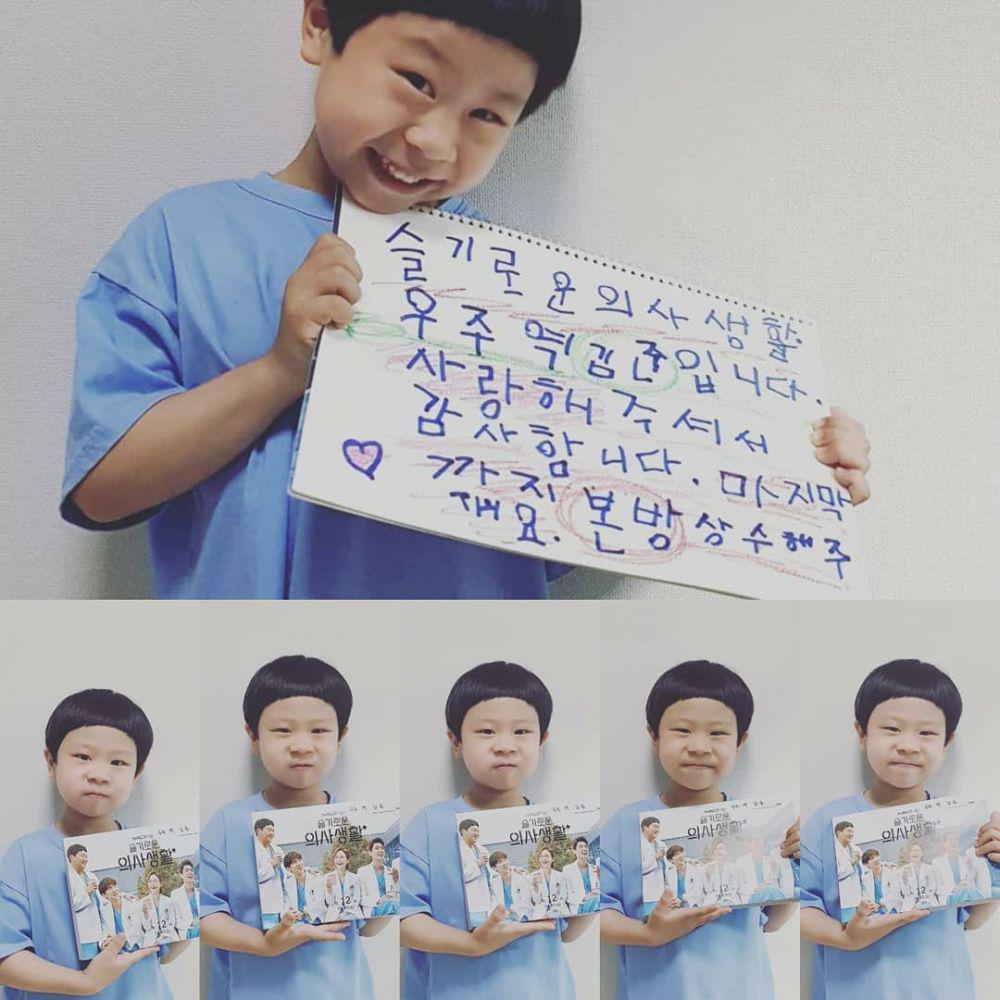 슬기로운의사생활
우주역김준입니다.
사랑해주셔서
감사함니다. 마지막
까지 본방상수해주
재요.
슬기로운
의사생활
12
슬기로운
의사생활
12
슬기로운
의사생활
12
슬기로운
의사생활
12
슬기로운
의사생활
12